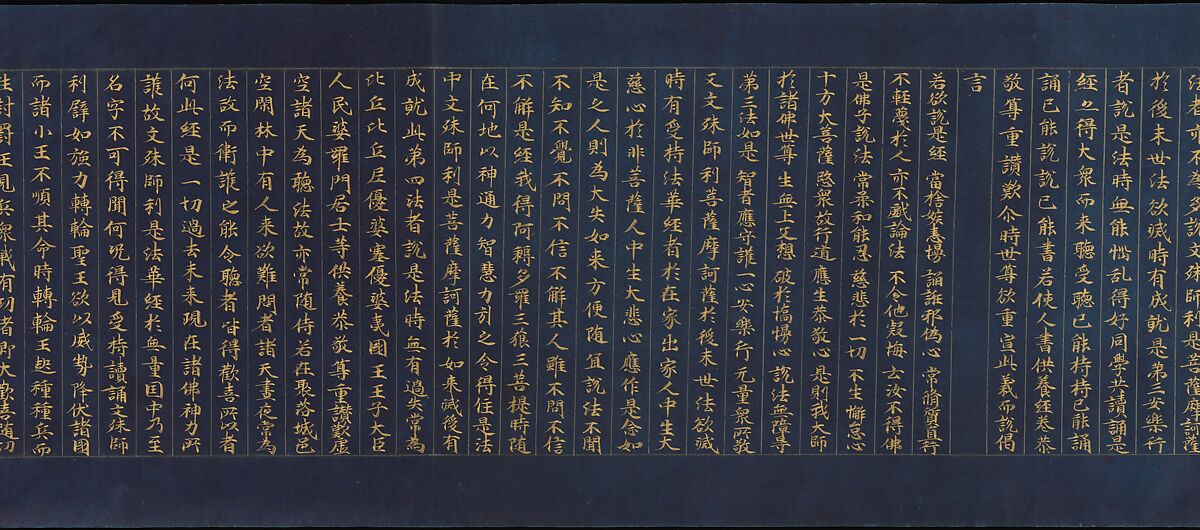 為多說文殊師利是菩薩摩訶薩
於後末世法欲滅時有成就是第三安樂行
者說是法時無能惱乱得好同學共讀誦是
經亦得大衆而来聽受聽已能持持已能誦
誦已能說說已能書若使人書供養經巻恭
敬尊重讃歎尒時世尊欲重宣此義而說偈
言
若欲說是經 當捨嫉恚慢 諂誑邪偽心 常脩質直行
不輕蔑於人 亦不戯論法 不令他疑悔 云汝不得佛
是佛子說法 常柔和能忍 慈悲於一切 不生懈怠心
十方大菩薩 愍衆故行道 應生恭敬心 是則我大師
於諸佛世尊 生無上父想 破於憍慢心 說法無障㝵
第三法如是 智者應守護 一心安樂行 无量衆所敬
又文殊師利菩薩摩訶薩於後末世法欲滅
時有受持法華經者於在家出家人中生大
慈心於非菩薩人中生大悲心應作是念如
是之人則為大失如来方便随宜說法不聞
不知不覺不問不信不解其人雖不問不信
不解是經我得阿耨多羅三藐三菩提時随
在何地以神通力智慧力引之令得住是法
中文殊師利是菩薩摩訶薩於如来滅後有
成就此第四法者說是法時無有過失常為
比丘比丘尼優婆塞優婆夷國王王子大臣
人民婆羅門居士等供養恭敬尊重讃歎虚
空諸天為聽法故亦常随侍若在聚落城邑
空閑林中有人来欲難問者諸天晝夜常為
法故而衛護之能令聽者皆得歡喜所以者
何此經是一切過去未来現在諸佛神力所
護故文殊師利是法華經於無量国中乃至
名字不可得聞何况得見受持讀誦文殊師
利譬如強力轉輪聖王欲以威勢降伏諸國
而諸小王不順其命時轉輪王起種種兵而
往討罸王見兵衆戰有功者即大歡喜随功